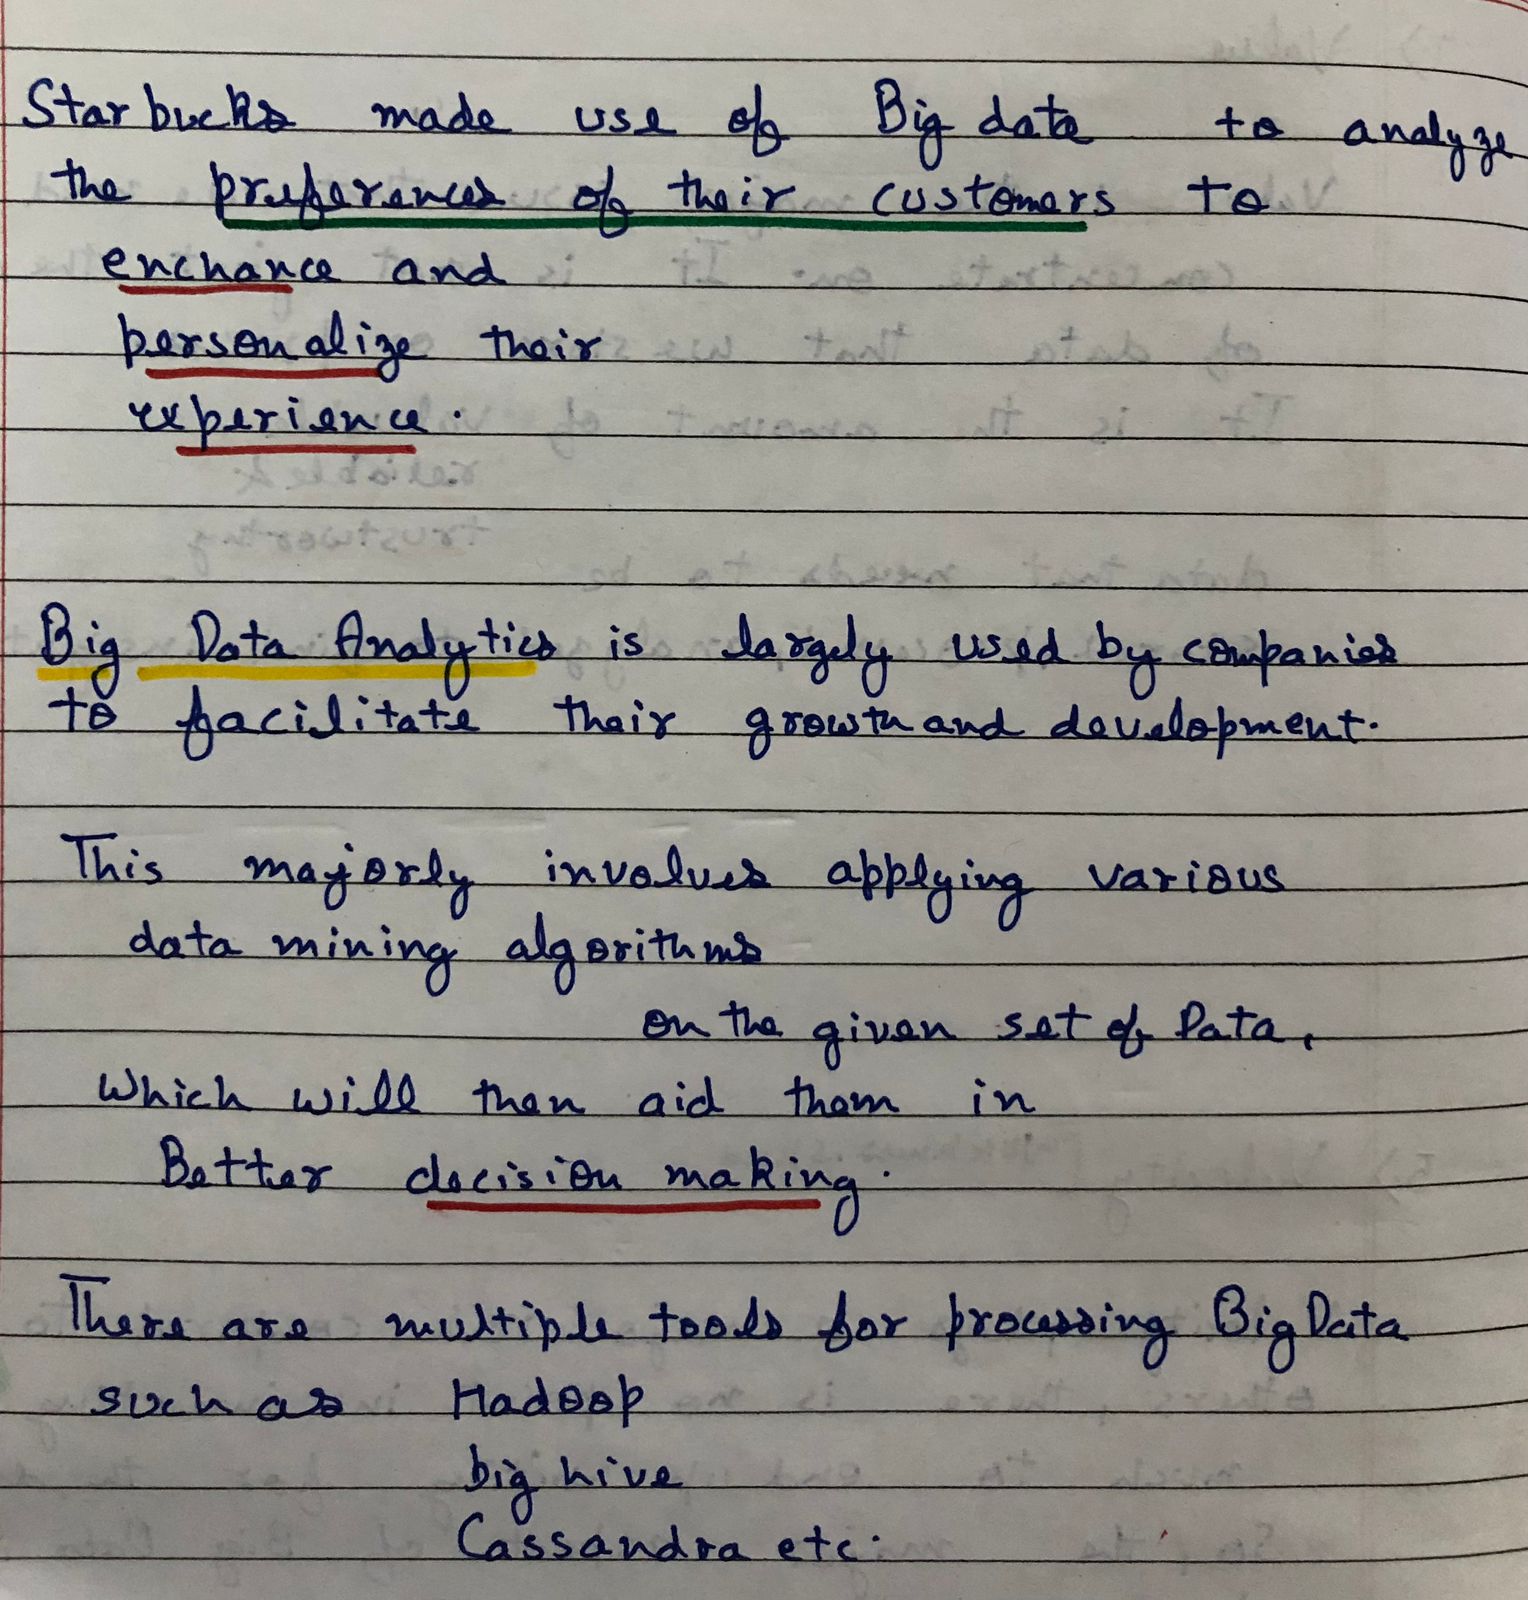 Starbucks made use of Big data to analyze
the preferences of their customers to
enchance and
personalize their
experience.
Big Data Analytics is largely used by companies
to facilitate their growth and development.
This majorly involves applying various
data mining algorithms
on the given set of Data,
Which will then aid them in
Better decision making.
There are multiple tools for processing Big Data
such as Hadoop
big hive
Cassandra etc.